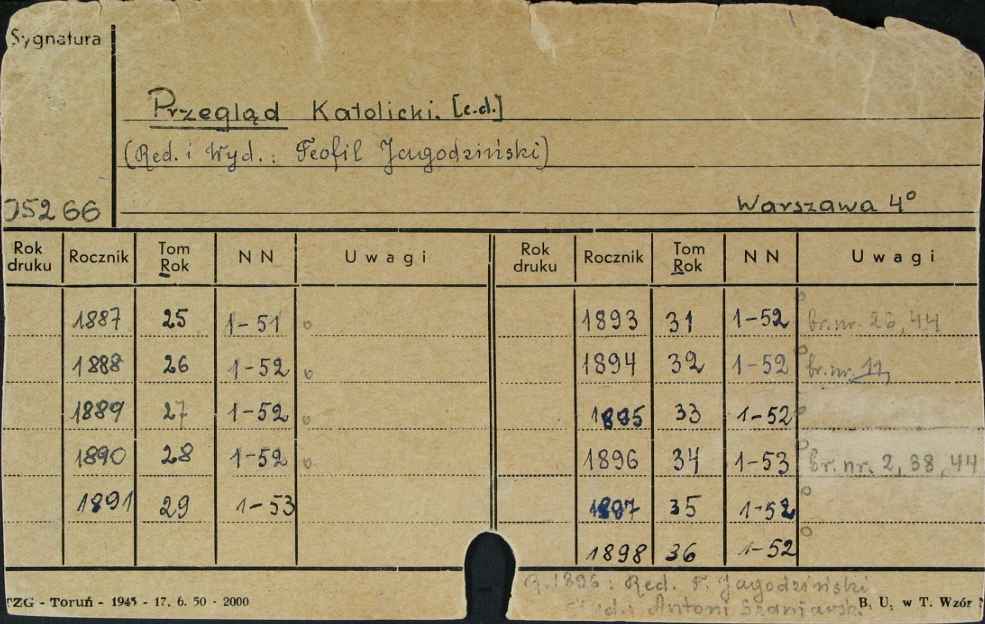 Sygnatura
Przegląd Katolicki. [c.d.]
(Red. i Wyd.: Teofil Jagodziński)
05266
Warszawa 4°
Rok druku Rocznik Tom Rok NN Uwagi Rok druku Rocznik Tom Rok NN Uwagi
1887 25 1-51 1893 31 1-52 br. nr. 26, 44
1888 26 1-52 1894 32 1-52 br. nr. 11,
1889 27 1-52 1895 33 1-52
1890 28 1-52 1896 34 1-53 br. nr. 2, 38, 44
1891 29 1-53 1897 35 1-52
1898 36 1-52
R. 1896: Red. T. Jagodziński
TZG - Toruń - 1945 - 17. 6. 50 - 2000
Antoni Szaniawski
B. U. w T. Wzór